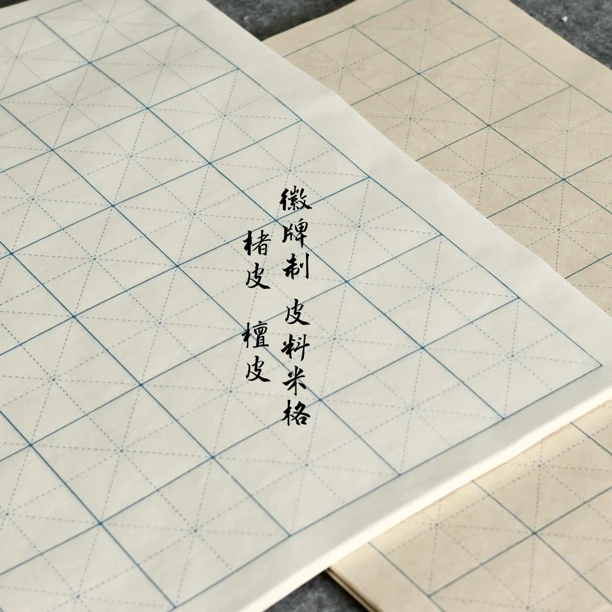 徽牌制 皮料米格
楮皮 檀皮